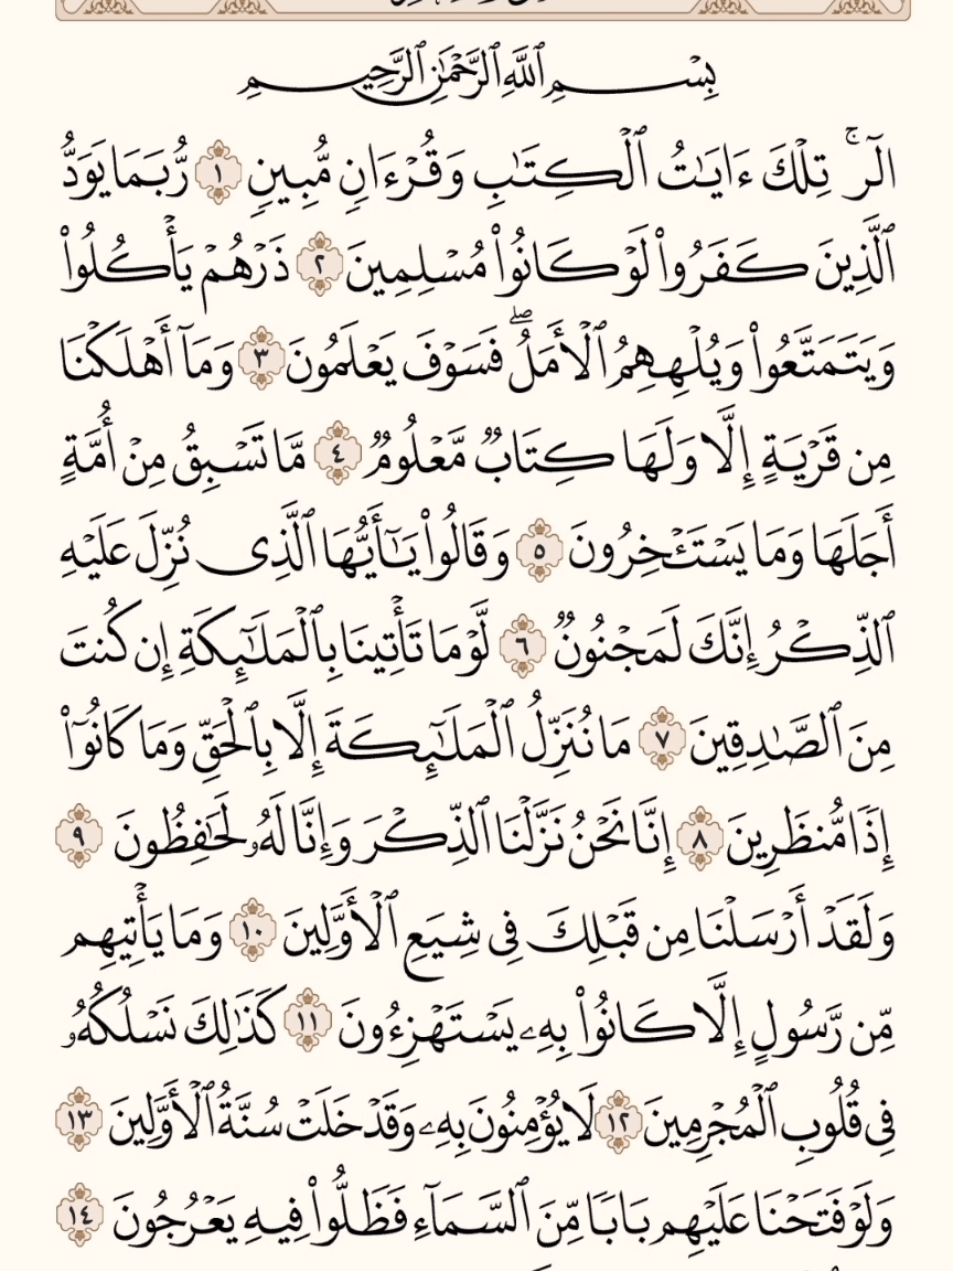 بِسْمِ ٱللَّهِ ٱلرَّحْمَٰنِ ٱلرَّحِيمِ
الٓرۚ تِلْكَ ءَايَٰتُ ٱلْكِتَٰبِ وَقُرْءَانٖ مُّبِينٖ ١ رُّبَمَا يَوَدُّ
ٱلَّذِينَ كَفَرُواْ لَوْ كَانُواْ مُسْلِمِينَ ٢ ذَرْهُمْ يَأْكُلُواْ
وَيَتَمَتَّعُواْ وَيُلْهِهِمُ ٱلْأَمَلُۖ فَسَوْفَ يَعْلَمُونَ ٣ وَمَآ أَهْلَكْنَا
مِن قَرْيَةٍ إِلَّا وَلَهَا كِتَابٞ مَّعْلُومٞ ٤ مَّا تَسْبِقُ مِنْ أُمَّةٍ
أَجَلَهَا وَمَا يَسْتَـْٔخِرُونَ ٥ وَقَالُواْ يَٰٓأَيُّهَا ٱلَّذِى نُزِّلَ عَلَيْهِ
ٱلذِّكْرُ إِنَّكَ لَمَجْنُونٞ ٦ لَّوْ مَا تَأْتِينَا بِٱلْمَلَٰٓئِكَةِ إِن كُنتَ
مِنَ ٱلصَّٰدِقِينَ ٧ مَا نُنَزِّلُ ٱلْمَلَٰٓئِكَةَ إِلَّا بِٱلْحَقِّ وَمَا كَانُوٓاْ
إِذٗا مُّنظَرِينَ ٨ إِنَّا نَحْنُ نَزَّلْنَا ٱلذِّكْرَ وَإِنَّا لَهُۥ لَحَٰفِظُونَ ٩
وَلَقَدْ أَرْسَلْنَا مِن قَبْلِكَ فِى شِيَعِ ٱلْأَوَّلِينَ ١٠ وَمَا يَأْتِيهِم
مِّن رَّسُولٍ إِلَّا كَانُواْ بِهِۦ يَسْتَهْزِءُونَ ١١ كَذَٰلِكَ نَسْلُكُهُۥ
فِى قُلُوبِ ٱلْمُجْرِمِينَ ١٢ لَا يُؤْمِنُونَ بِهِۦ وَقَدْ خَلَتْ سُنَّةُ ٱلْأَوَّلِينَ ١٣
وَلَوْ فَتَحْنَا عَلَيْهِم بَابٗا مِّنَ ٱلسَّمَآءِ فَظَلُّواْ فِيهِ يَعْرُجُونَ ١٤